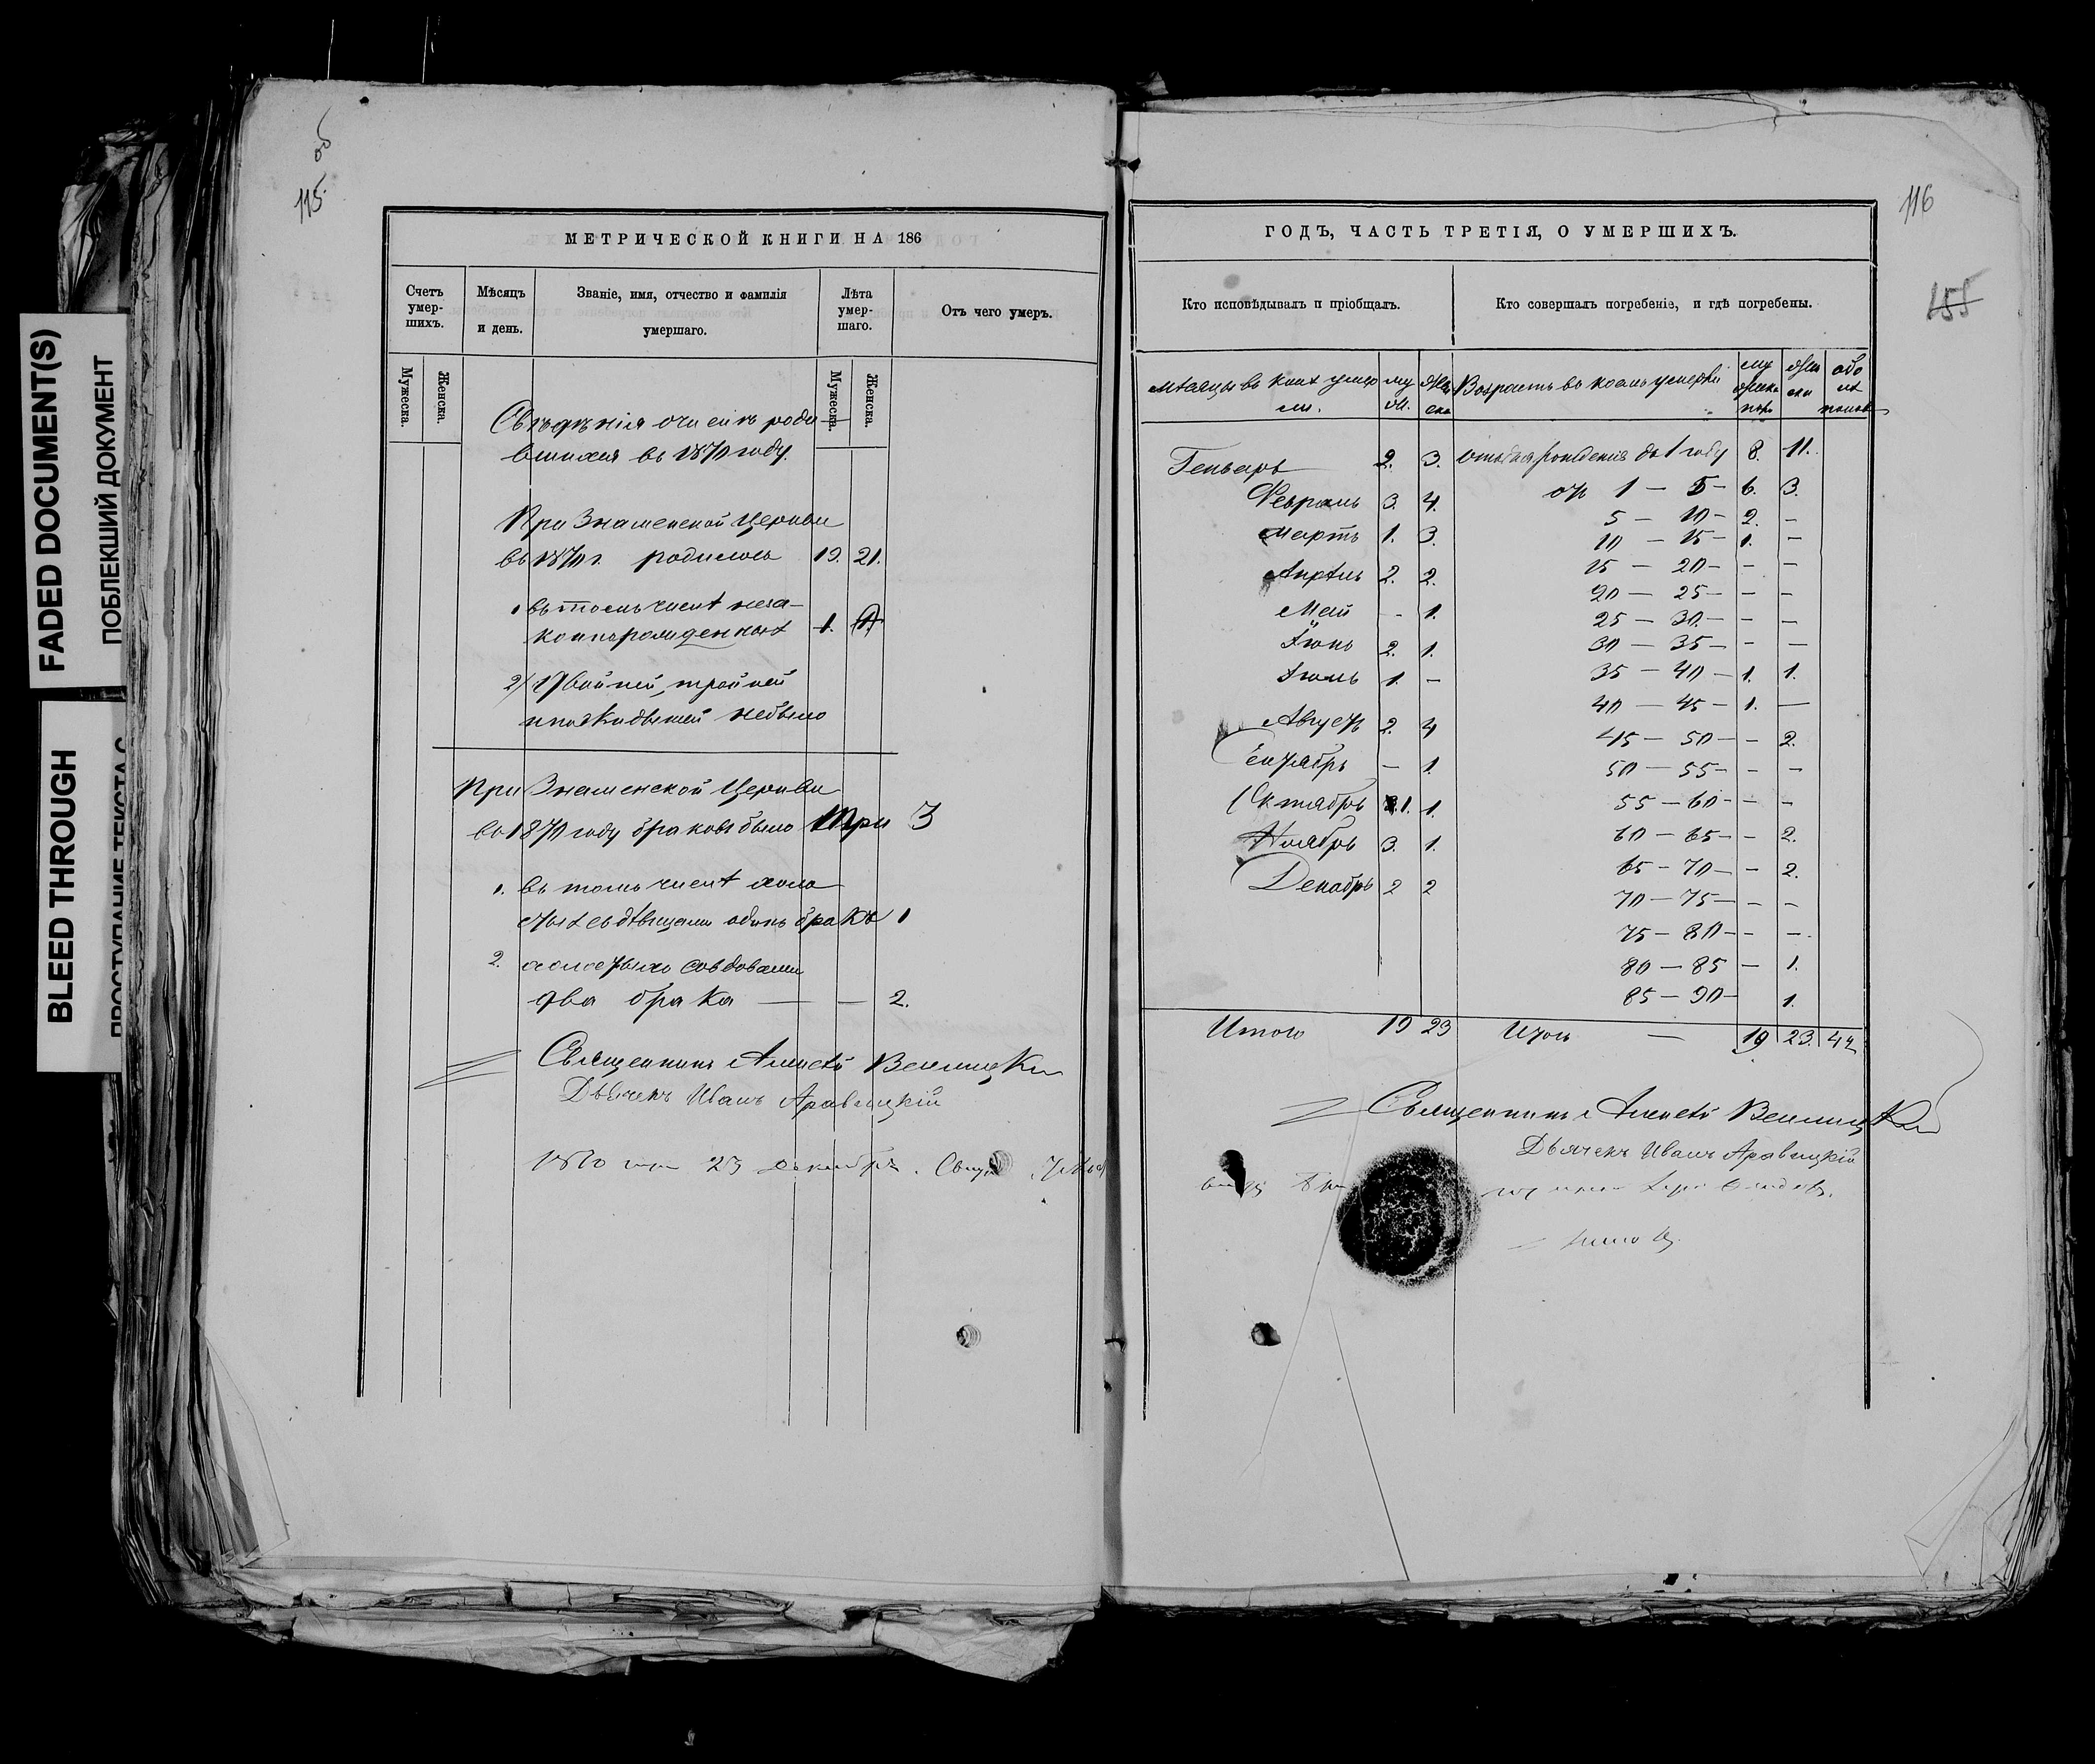 FADED DOCUMENT(S)
ПОБЛЕКШИЙ ДОКУМЕНТ
BLEED THROUGH
115 об
МЕТРИЧЕСКОЙ КНИГИ НА 186
Счетъ умер-шихъ. Мѣсяцъ и день. Званіе, имя, отчество и фамилія умершаго. Лѣта умер-шаго. Отъ чего умеръ.
Мужеска. Женска. Мужеска. Женска.
Свѣдѣнія о числѣ роди
вшихся въ 1870 году.
При Знаменской Церкви
въ 1870 г. родилось 19. 21.
1 въ томъ числѣ неза-
коннорожденныхъ 1.
2) Двойней, тройней
и подкидышей небыло
При Знаменской Церкви
въ 1870 году браковъ было три 3
1. въ томъ числѣ холо
стыхъ съ дѣвицами одинъ бракъ 1
2. холостыхъ со вдовами
два брака — — 2.
Священникъ Алексѣй
Дьячекъ Иванъ Аравицкій
1870 23 декабря.
116
155
ГОДЪ, ЧАСТЬ ТРЕТІЯ, О УМЕРШИХЪ.
Кто исповѣдывалъ и пріобщалъ. Кто совершалъ погребеніе, и гдѣ погребены.
Мѣсяцы въ коихъ умер
ли.
Возрастъ въ коемъ умерли
Генварь 2. 3. отъ дня рожденія до 1 году 8. 11.
Февраль 3. 4. отъ 1 — 5 — 6. 3.
5 — 10 — 2. —
Мартъ 1. 3. 10 — 15 — 1. —
Апрѣль 2. 2. 15 — 20 — — —
20 — 25 — — —
Май - 1. 25 — 30 — — —
Іюнь 2. 1. 30 — 35 — — —
Іюль 1. — 35 — 40 — 1. 1.
Августъ 2. 4 40 — 45 — 1. —
45 — 50 — — 2.
Сентябрь — 1. 50 — 55 — — —
Октябрь 1. 1. 55 — 60 — — —
Ноябрь 3. 1. 60 — 65 — — 2.
Декабрь 2 2 65 — 70 — — 2.
70 — 75 — — —
75 — 80 — — —
80 — 85 — 1.
85 — 90 — 1.
Итого 19 23 Итого — 19 23. 42
Священникъ Алексѣй
Дьячекъ Иванъ Аравицкій